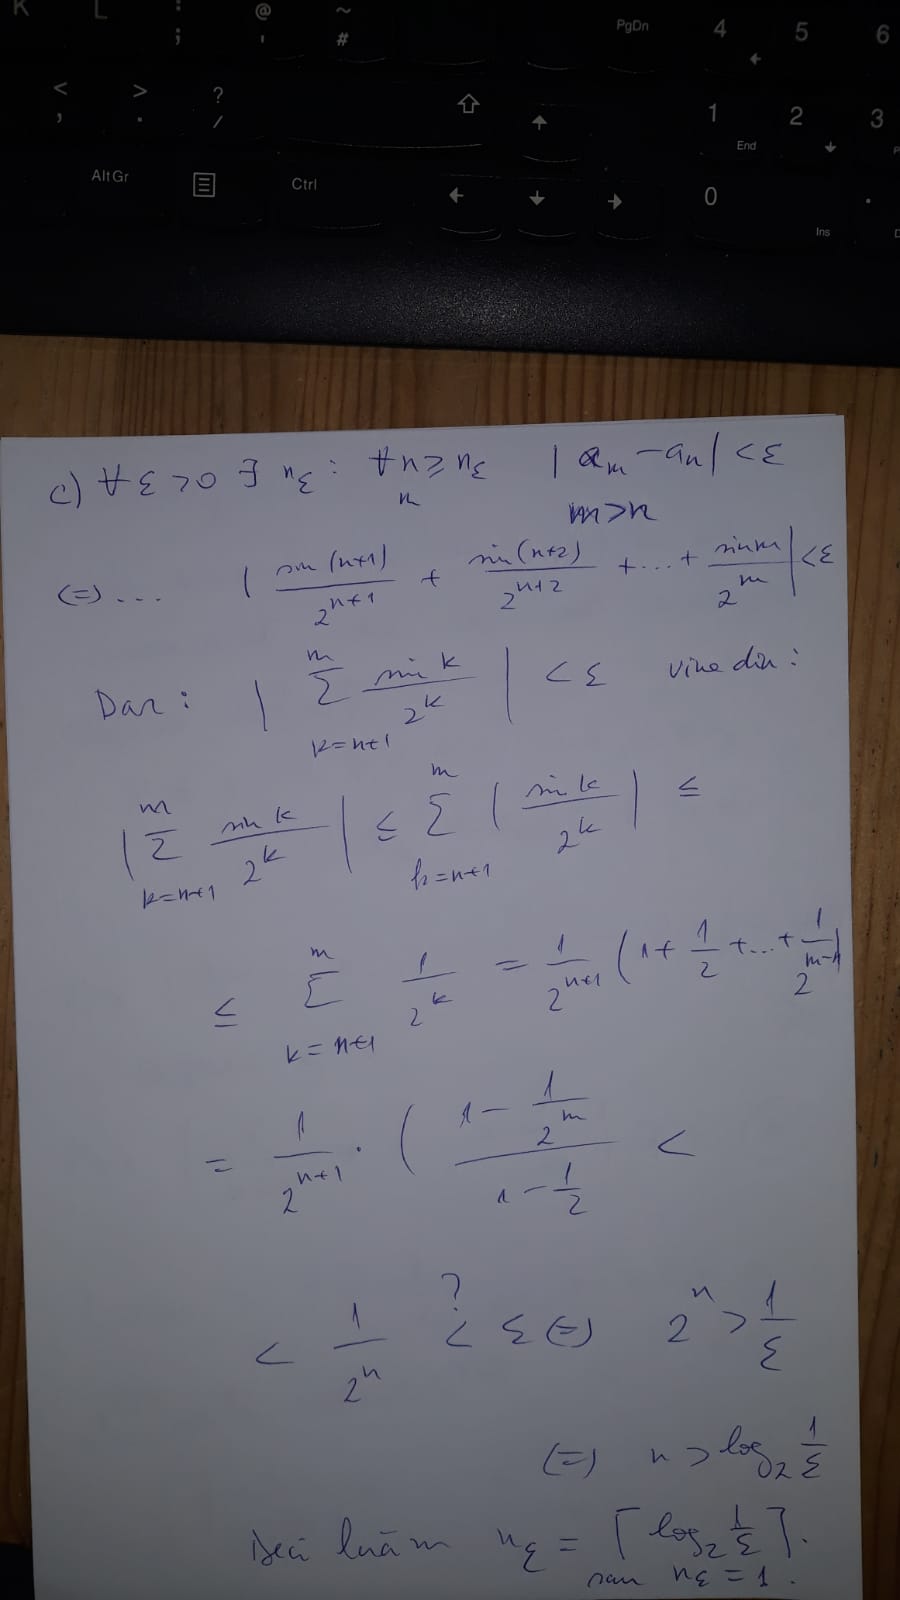 K L : ; @ ' ~ # PgDn 4 ← 5 6
< , > . ? / ⇧ ↑ 1 End 2 ↓ 3
Alt Gr Ctrl ← ↓ → 0 Ins .
c) ∀ ε > 0 ∃ n_ε : ∀ n ≥ n_ε |a_m - a_n| < ε
n m > n
(=) ... | sin(n+1)/2^{n+1} + sin(n+2)/2^{n+2} + ... + sin m/2^m | < ε
Dar : | Σ_{k=n+1}^{m} sin k/2^k | < ε vine din :
| Σ_{k=n+1}^{m} sin k/2^k | ≤ Σ_{k=n+1}^{m} | sin k/2^k | ≤
≤ Σ_{k=n+1}^{m} 1/2^k = 1/2^{n+1} ( 1 + 1/2 + ... + 1/2^{m-1} )
= 1/2^{n+1} · ( (1 - 1/2^m)/(1 - 1/2) <
< 1/2^n <? ε (=) 2^n > 1/ε
(=) n > log_2 1/ε
Deci luăm n_ε = ⌈ log_2 1/ε ⌉.
sau n_ε = 1.